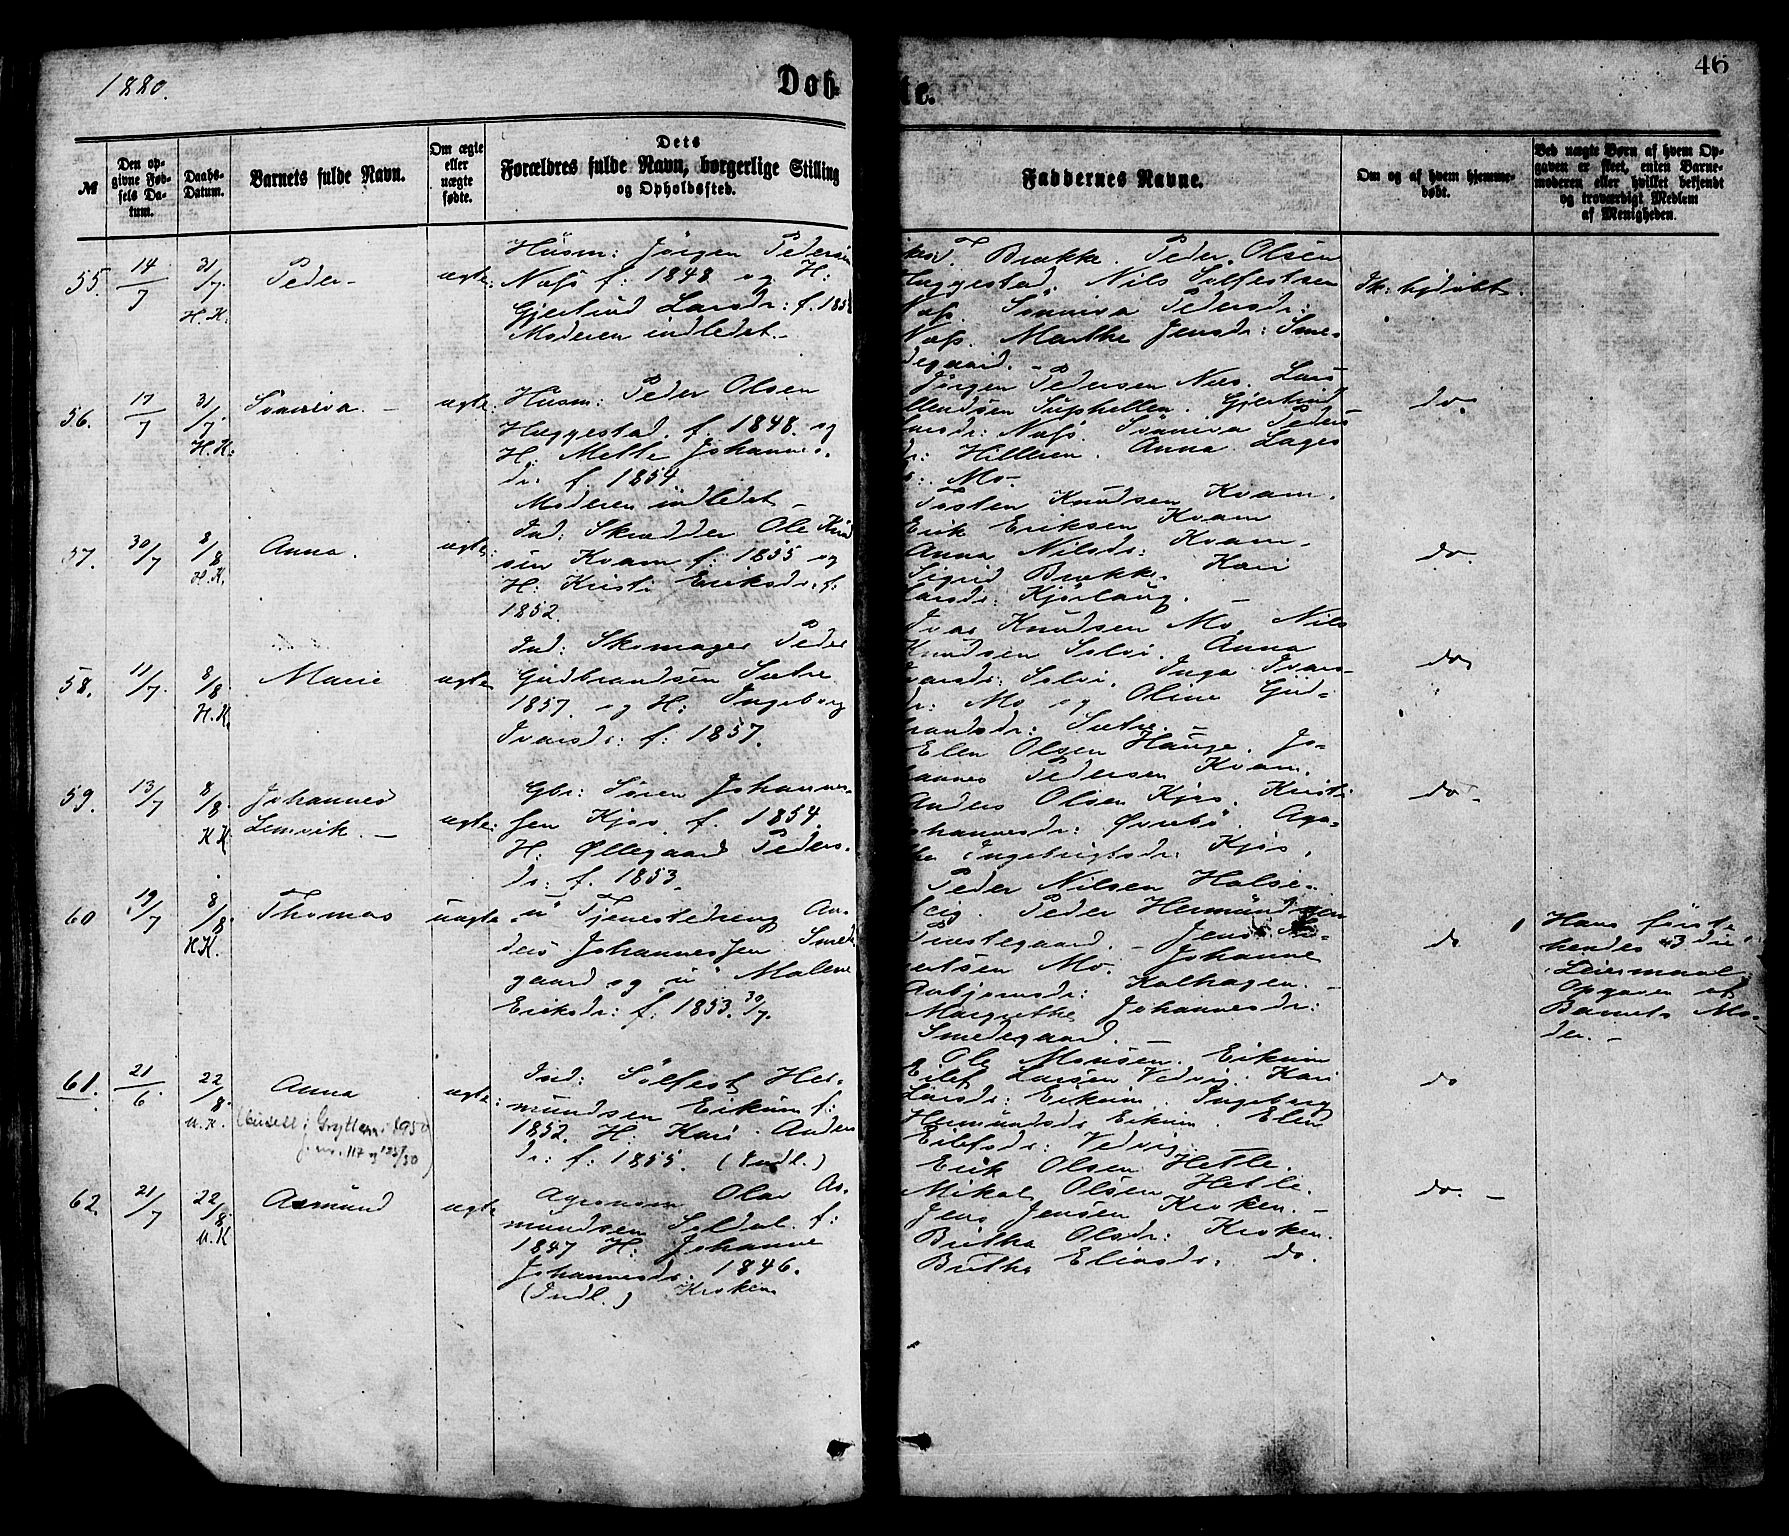 1880.
Dob
te.
46
№
Den op-
givne Fød-
sels Da-
tum.
Daabs-
Datum.
Barnets fulde Navn.
Om ægte
eller
uægte
fødte.
Dets
Forældres fulde Navn, borgerlige Stilling
og Opholdssted.
Faddernes Navne.
Om og af hvem hjemme-
døbt.
Ved uægte Børn af hvem Op-
gaven er skeet, enten Barne-
moderen eller hvilket bekjendt
og troværdigt Medlem
af Menigheden.
55.
14/7
31/7.
H. K.
Peder -
ægte:
Husm: Jørgen Pedersen
Næss f: 1848 og H:
Gjertrud Larsdr: f. 185
Moderen indledet. -
T. Brække. Peder Olsen
Hæggestad. Nils Solfestsen
Næss. Synneva Pedersdr:
Næss. Marthe Jensdr: Sme-
degaard. -
Ik: hjdøbt.
56.
17/7
31/7.
H. K.
Synneva. -
ægte:
Husm: Peder Olsen
Hæggestad. f. 1848. og
H: Mette Johannes-
dr: f. 1854
Moderen indledet -
Jørgen Pedersen Næss. Lars
Ellendsen Suphellen. Gjertrud
Larsdr: Næss. Synneva Peders-
dr: Hilleren. Anna Lages
Mo -
do.
57.
30/7
8/8
H. K.
Anna.
ægte:
Ind: Skrædder Ole Knud
sen Kvam f: 1855 og
H: Kristi Eriksdr: f:
1852.
Tosten Knudsen Kvam.
Erik Eriksen Kvam
Anna Nilsdr: Kvam.
Sigrid Brække. Kari
Larsdr: Kjørlaug. -
do.
58.
11/7.
8/8.
H. K.
Marie
ægte
Ind: Skomager Peder
Gudbrandsen Sætre
1857. og H: Ingeborg
Ivarsdr: f: 1857.
Ivar Knudsen Mo. Nils
Knudsen Selvi. Anna
Ivarsdr: Selvi. Inga Ivars-
dr: Mo og Oline Gud-
brandsdr: Sætre. -
do.
59.
13/7
8/8.
K. K
Johannes
Lemvik. -
ægte:
Gbr: Søren Johannes-
sen Kjøs. f. 1854.
H. Øllegaard Peders-
dr: f. 1853.
Elen Olsen Hauge. Jo-
hannes Pedersen Kvam.
Anders Olsen Kjøs. Kristi
Johannesdr: Øvrebø. Aga-
the Ingebrigtsdr: Kjøs.
do.
60
19/7
8/8.
H. K.
Thomas
uægte
"u" Tjenestedreng An-
ders Johannessen Smede
gaard og "u" Malene
Eriksdr: f: 1853. 30/7.
Peder Nilsen Halse.
Peder Hermundsen
Præstegaard. - Jens
Mo. Johanne
Asbjørnsdr: Kalhagen. -
Margrethe Johannesdr:
Smedegaard. -
do
Hans første
hendes 3die
Leiermaal
Opgaven af
Barnets Mo-
der. -
61.
21/6
22/8.
U. K.
Anna
(busett i Grytten i 1950
j. nr. 117 og 123/50)
ægte:
Ind: Solfest Her-
mundsen Eikum f:
1852. H: Kari Anders
dr: f: 1855. (Indl.)
Ole Monsen Eikum
Eilef Larsen Vedvig. Kari
Larsdr: Eikum. Ingeborg
Hermundsdr Eikum. Elen
Eilefsdr: Vedvig. -
do
62.
21/7
22/8.
U. K
Asmund
ægte
Agronom Olav As-
mundsen Soldal. f:
1847 H: Johanne
Johannesdr. 1846.
(Indl.) Kroken
Erik Olsen Hetle.
Mikal Olsen Hetle.
Jens Jensen Kroken. -
Brithe Olsdr: Kroken.
Brithe Eliasdr. do.
do. -